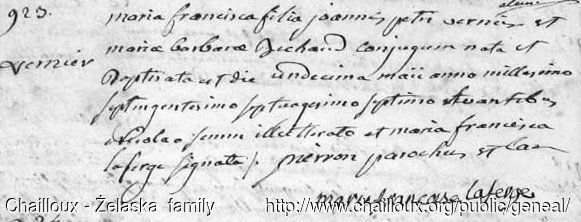 923.
maria francisca filia joannis petri vernier et
mariæ barbaræ Richaud conjugum nata et
Vernier
Baptizata est die undecima maii anno millesimo
septingentesimo septuagesimo septimo levantibus
nicolao simon illitterato et maria francisca
laferge signata /. pierron parochus et
marie françoise laferge
Chailloux - Zelaska family http://www.chailloux.org/public/geneal/